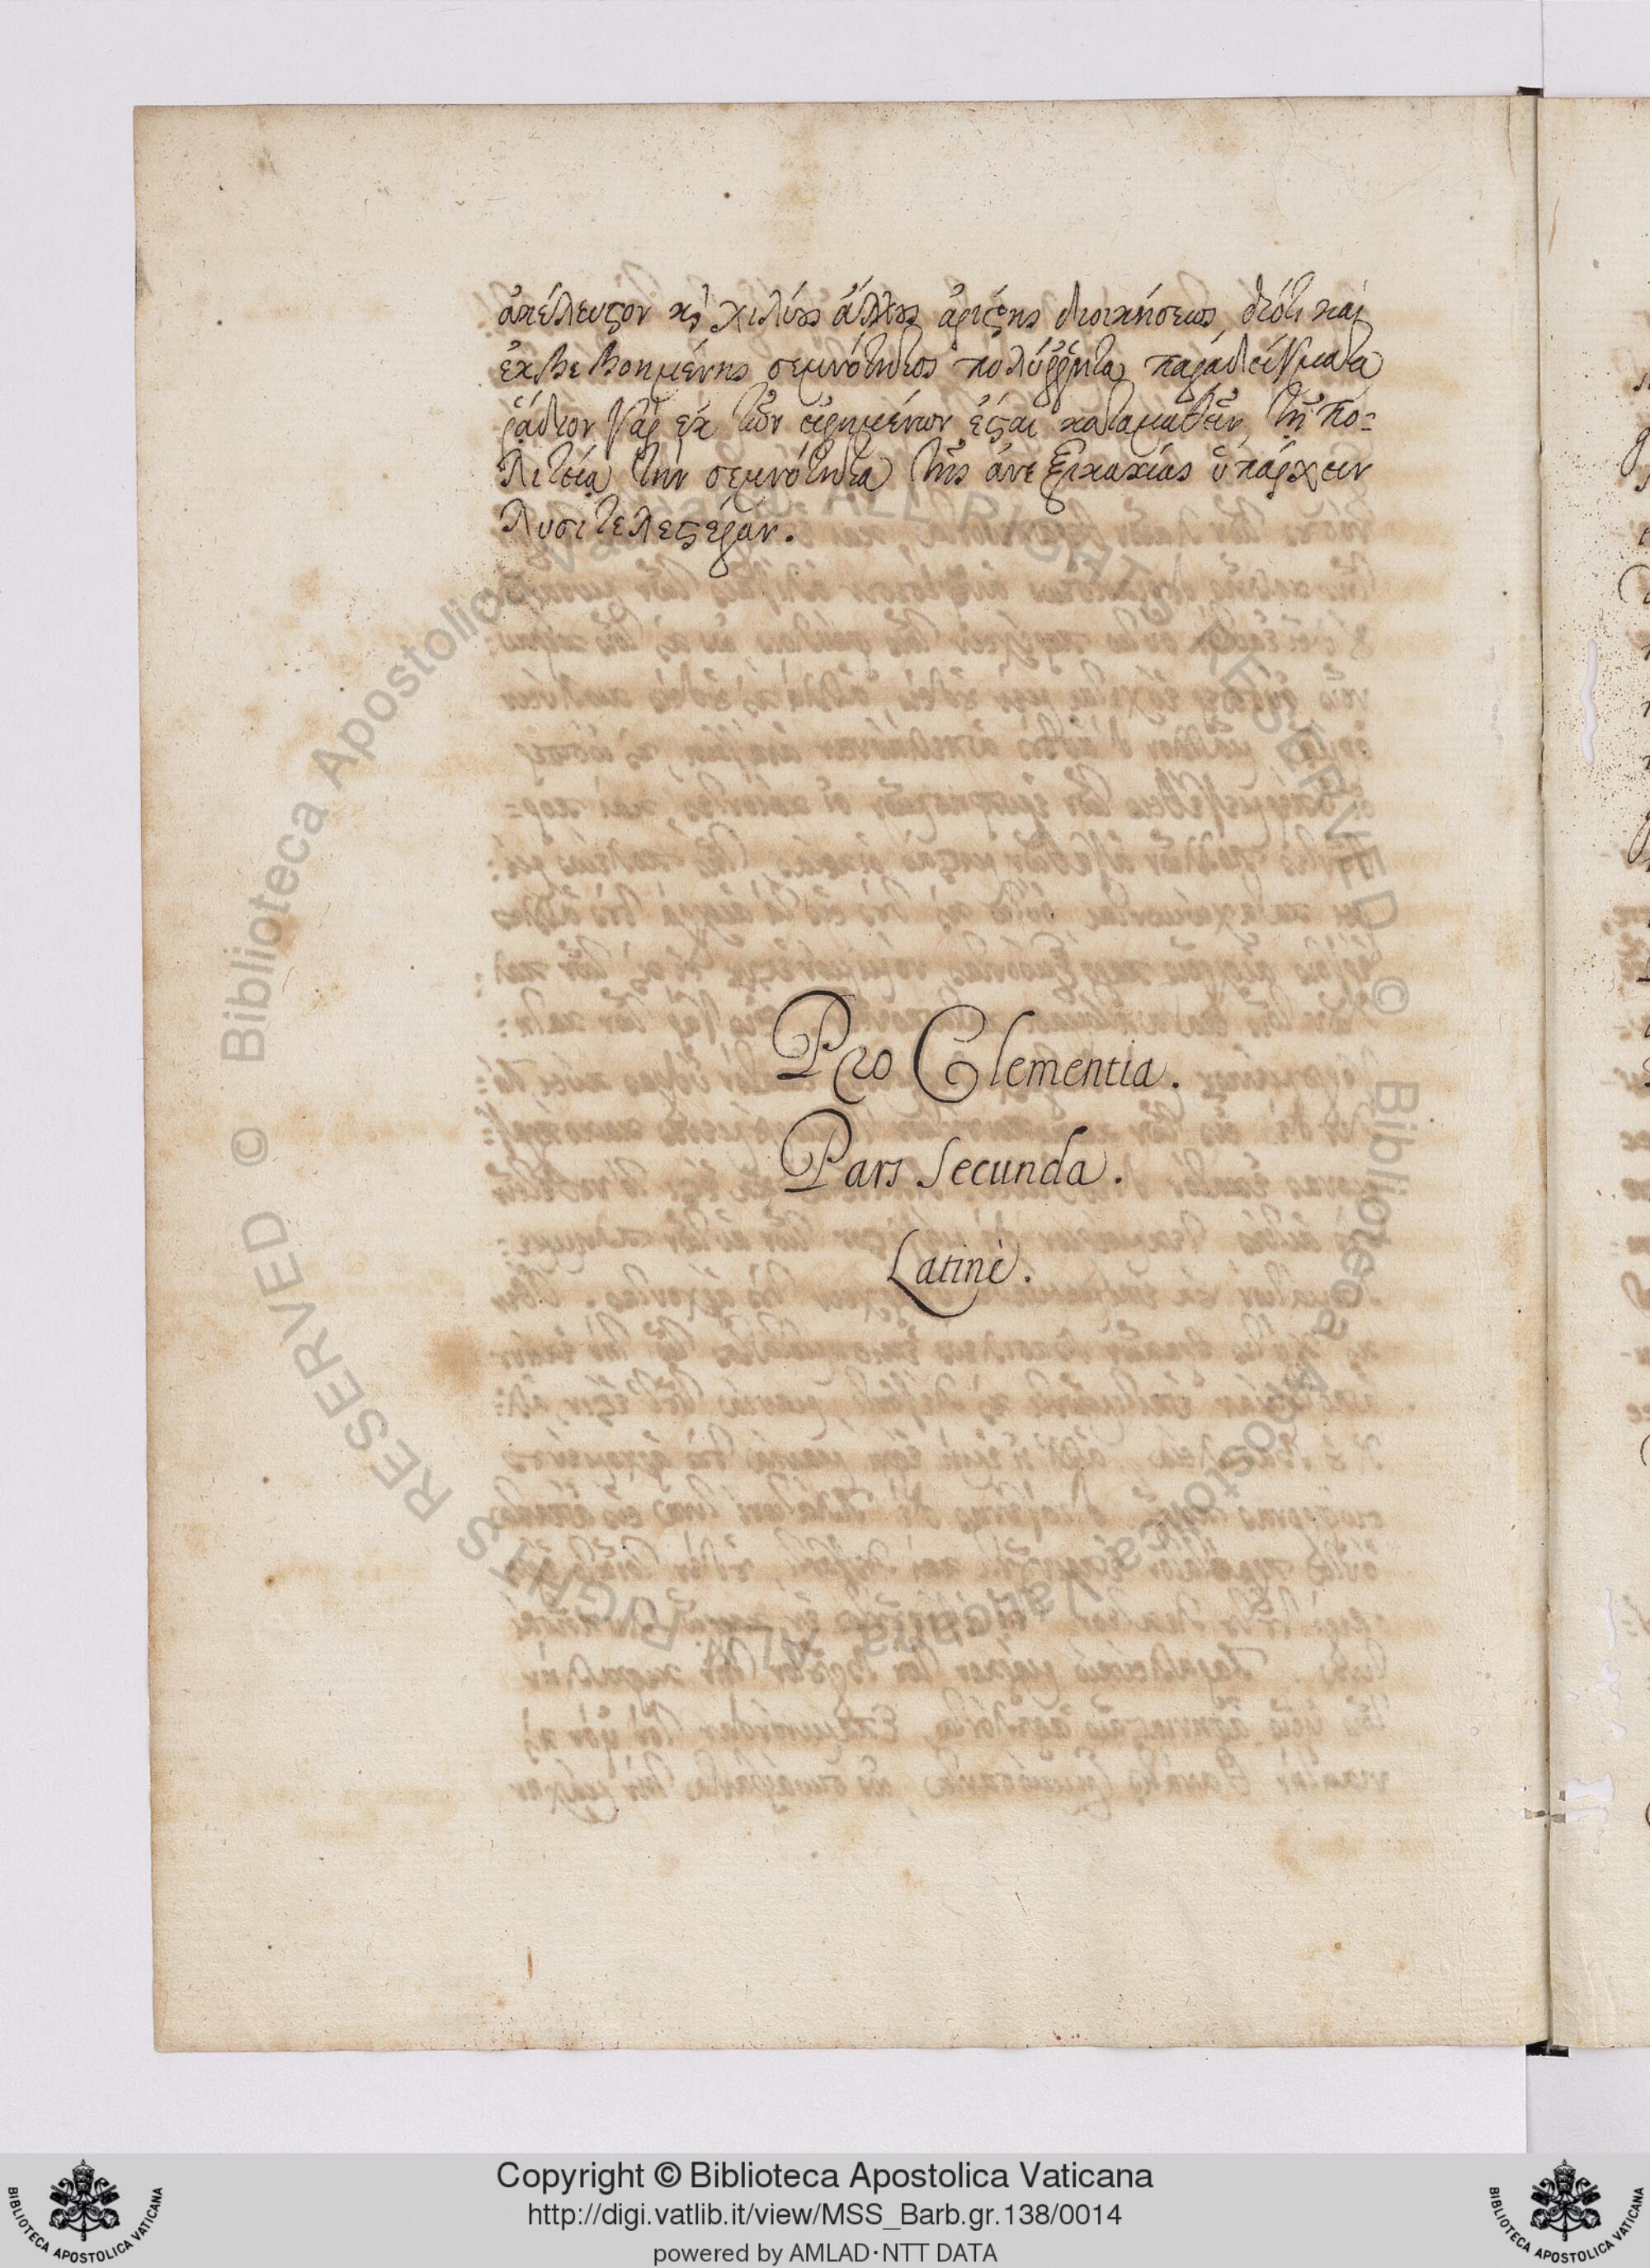 ἀκέλευστον καὶ χιλίους ἄλλους ἀρίστης διοικήσεως, διότι καὶ
ἐκβεβοημένης σεμνότητος πολύῤῥητα παραδείγματα
ῥάδιον γὰρ ἐκ τῶν εἰρημένων ἔσται καταμαθεῖν, τῇ πο=
λιτείᾳ τὴν σεμνότητα τῆς ἀνεξικακίας ὑπάρχειν
λυσιτελεστέραν.
Pro Clementia.
Pars Secunda.
Latinè.
© Biblioteca Apostolica Vaticana ALL RIGHTS RESERVED © Biblioteca Apostolica Vaticana ALL RIGHTS RESERVED
Copyright © Biblioteca Apostolica Vaticana
http://digi.vatlib.it/view/MSS_Barb.gr.138/0014
powered by AMLAD·NTT DATA
BIBLIOTECA APOSTOLICA VATICANA
BIBLIOTECA APOSTOLICA VATICANA